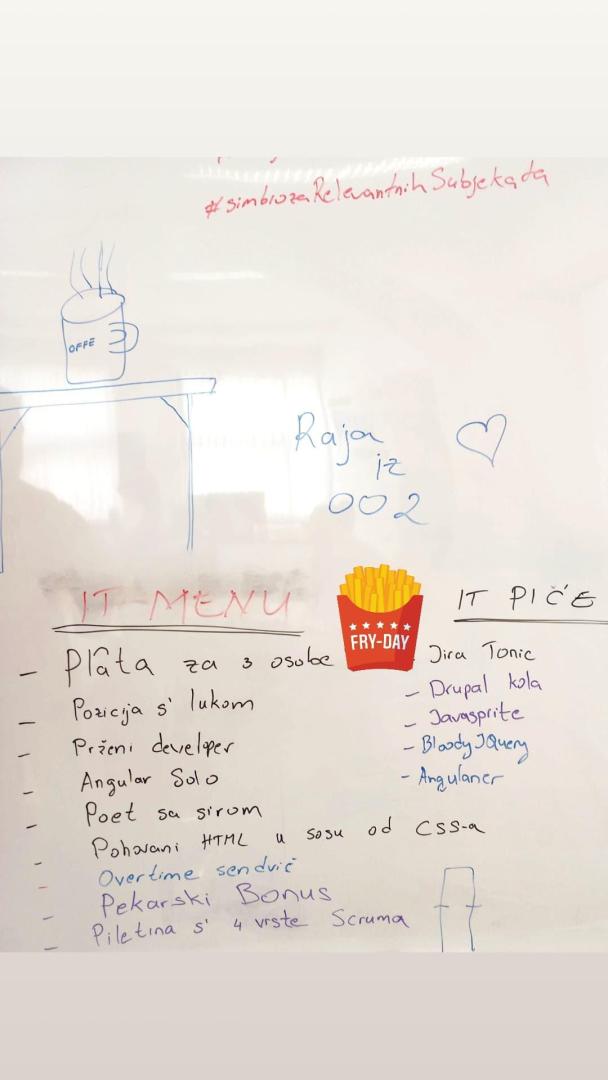 #simbiozaRelevantnihSubjekada
OFFE
Raja
iz
002
IT MENU
- Plâta za 3 osobe
- Pozicija s' lukom
- Prženi developer
- Angular Solo
- Poet sa sirom
- Pohovani HTML u sosu od CSS-a
- Overtime sendvič
- Pekarski Bonus
- Piletina s' 4 vrste Scruma
FRY-DAY
IT PIĆE
Jira Tonic
- Drupal kola
- Javasprite
- Bloody JQuery
- Angulaner